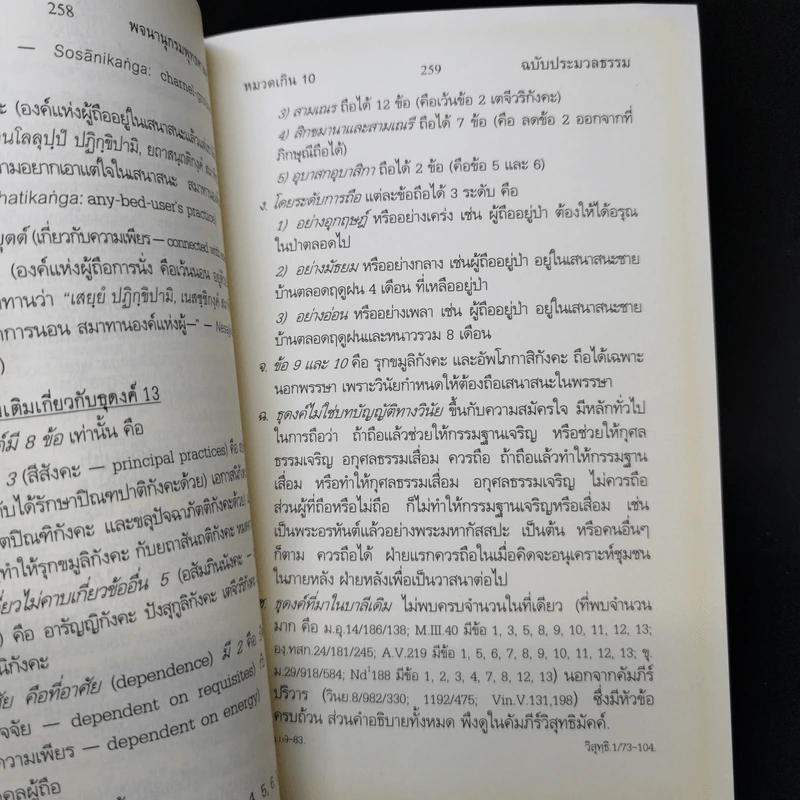 258
พจนานุกรมพุทธศาส
— Sosānikaṅga: charnel-ground
ะ (องค์แห่งผู้ถืออยู่ในเสนาสนะแล้วแต่
นโลลุปฺปํ ปฏิกฺขิปามิ, ยถาสนฺถติกงฺคํ
วามอยากเอาแต่ใจในเสนาสนะ สมาทาน
hatikaṅga: any-bed-user's practice)
ยุตต์ (เกี่ยวกับความเพียร — connected with
(องค์แห่งผู้ถือการนั่ง คือเว้นนอน อยู่
ทานว่า "เสยฺยํ ปฏิกฺขิปามิ, เนสชฺชิกงฺคํ
การนอน สมาทานองค์แห่งผู้—" —
)
มเติมเกี่ยวกับธุดงค์ 13
์มี 8 ข้อ เท่านั้น คือ
3 (สีสังคะ — principal practices) คือ
ับได้รักษาปิณฑปาติกังคะด้วย) เอกาสนิกัง
ตปิณฑิกังคะ และขลุปัจฉาภัตติกังคะด้วย)
ทำให้รุกขมูลิกังคะ กับยถาสันถติกังคะ
ี่ยวไม่คาบเกี่ยวข้ออื่น 5 (อสัมภินนังคะ —
) คือ อารัญญิกังคะ ปังสุกูลิกังคะ เตจีวริกังคะ
นิกังคะ
ัย คือที่อาศัย (dependence) มี 2 คือ
จจัย — dependent on requisites)
ความเพียร — dependent on energy)
คลผู้ถือ
4, 5, 6,
หมวดเกิน 10 259 ฉบับประมวลธรรม
3) สามเณร ถือได้ 12 ข้อ (คือเว้นข้อ 2 เตจีวริกังคะ)
4) สิกขมานาและสามเณรี ถือได้ 7 ข้อ (คือ ลดข้อ 2 ออกจากที่
ภิกษุณีถือได้)
5) อุบาสกอุบาสิกา ถือได้ 2 ข้อ (คือข้อ 5 และ 6)
ง. โดยระดับการถือ แต่ละข้อถือได้ 3 ระดับ คือ
1) อย่างอุกฤษฏ์ หรืออย่างเคร่ง เช่น ผู้ถืออยู่ป่า ต้องให้ได้อรุณ
ในป่าตลอดไป
2) อย่างมัธยม หรืออย่างกลาง เช่นผู้ถืออยู่ป่า อยู่ในเสนาสนะชาย
บ้านตลอดฤดูฝน 4 เดือน ที่เหลืออยู่ป่า
3) อย่างอ่อน หรืออย่างเพลา เช่น ผู้ถืออยู่ป่า อยู่ในเสนาสนะชาย
บ้านตลอดฤดูฝนและหนาวรวม 8 เดือน
จ. ข้อ 9 และ 10 คือ รุกขมูลิกังคะ และอัพโภกาสิกังคะ ถือได้เฉพาะ
นอกพรรษา เพราะวินัยกำหนดให้ต้องถือเสนาสนะในพรรษา
ฉ. ธุดงค์ไม่ใช่บทบัญญัติทางวินัย ขึ้นกับความสมัครใจ มีหลักทั่วไป
ในการถือว่า ถ้าถือแล้วช่วยให้กรรมฐานเจริญ หรือช่วยให้กุศล
ธรรมเจริญ อกุศลธรรมเสื่อม ควรถือ ถ้าถือแล้วทำให้กรรมฐาน
เสื่อม หรือทำให้กุศลธรรมเสื่อม อกุศลธรรมเจริญ ไม่ควรถือ
ส่วนผู้ที่ถือหรือไม่ถือ ก็ไม่ทำให้กรรมฐานเจริญหรือเสื่อม เช่น
เป็นพระอรหันต์แล้วอย่างพระมหากัสสปะ เป็นต้น หรือคนอื่นๆ
ก็ตาม ควรถือได้ ฝ่ายแรกควรถือในเมื่อคิดจะอนุเคราะห์ชุมชน
ในภายหลัง ฝ่ายหลังเพื่อเป็นวาสนาต่อไป
ช. ธุดงค์ที่มาในบาลีเดิม ไม่พบครบจำนวนในที่เดียว (ที่พบจำนวน
มาก คือ ม.อุ.14/186/138; M.III.40 มีข้อ 1, 3, 5, 8, 9, 10, 11, 12, 13;
องฺ.ทสก.24/181/245; A.V.219 มีข้อ 1, 5, 6, 7, 8, 9, 10, 11, 12, 13; ขุ.
ม.29/918/584; Nd¹188 มีข้อ 1, 2, 3, 4, 7, 8, 12, 13) นอกจากคัมภีร์
ปริวาร (วินย.8/982/330; 1192/475; Vin.V.131,198) ซึ่งมีหัวข้อ
ครบถ้วน ส่วนคำอธิบายทั้งหมด พึงดูในคัมภีร์วิสุทธิมัคค์.
59-83. วิสุทฺธิ.1/73-104.